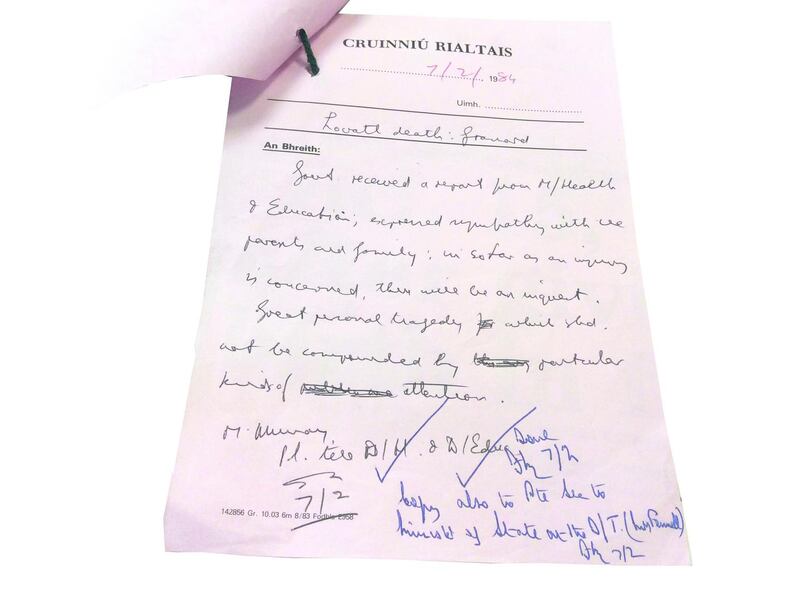 CRUINNIÚ RIALTAIS
7/2/ 1984
Uimh.
Lovatt death: Granard
An Bhreith:
Govt. received a report from M/Health
& Education; expressed sympathy with the
parents and family; in so far as an inquiry
is concerned, there will be an inquest.
Great personal tragedy which shd.
not be compounded by particular
kinds of attention.
M. Murray
Pl. tell D/H. & D/Educ
Done
7/2
7/2
Copy also to Pte Sec to
Minister of State at the D/T. (Mrs Fennell)
7/2
142856 Gr. 10.03 6m 8/83 Fodhla E958